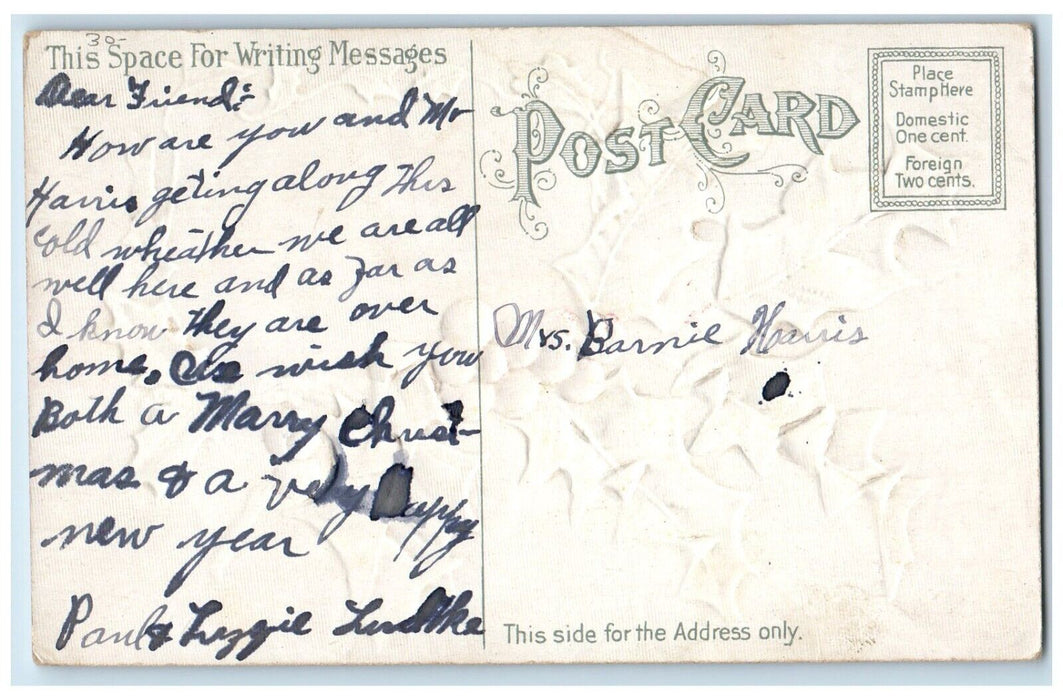 30-
This Space For Writing Messages
Dear Friend:-
How are you and Mr
Harris geting along This
cold wheather we are all
well here and as far as
I know They are over
home. We wish you
Both a Marry Christ-
mas & a very happy
new year
Paul & Lizzie
POST CARD
Place
Stamp Here
Domestic
One cent.
Foreign
Two cents.
Mrs. Barnie Harris
This side for the Address only.